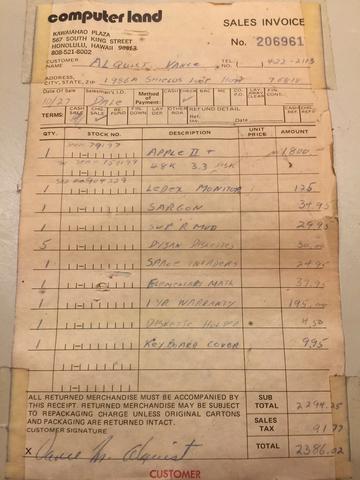 computerland
KAWAIAHAO PLAZA
567 SOUTH KING STREET
HONOLULU, HAWAII
808-521-8002
SALES INVOICE
No. 206961
CUSTOMER NAME ALQUIST, Vance TEL. NO. 422-2113
ADDRESS, CITY, STATE, ZIP 96818
Date Of Sale Salesman's I.D. Method of Payment: CASH CHECK BAC MC
10/27 Dale
TERMS: CASH SALE CHG. SALE RE-FUND LAY DEF OTHER ROA REFUND DETAIL Ref. No. Date CASH REF. CHG. REF.
QTY. STOCK NO. DESCRIPTION UNIT PRICE AMOUNT
1 APPLE II + 1800.
48K 3.3 DSK
1 LEDEX MONITOR 125
1 SARGON 34.95
1 SUP R MOD 29.95
5 DYSAN DISKETTES 30.00
1 SPACE INVADERS 24.95
1 ELEMENTARY MATH 39.95
1 1 YR WARRANTY 195.00
1 DISKETTE HOLDER 4.50
1 KEYBOARD COVER 9.95
ALL RETURNED MERCHANDISE MUST BE ACCOMPANIED BY
THIS RECEIPT. RETURNED MERCHANDISE MAY BE SUBJECT
TO REPACKAGING CHARGE UNLESS ORIGINAL CARTONS
AND PACKAGING ARE RETURNED INTACT.
CUSTOMER SIGNATURE
X Vance M. Alquist
SUB TOTAL 2294.25
SALES TAX 91.77
TOTAL 2386.02
CUSTOMER